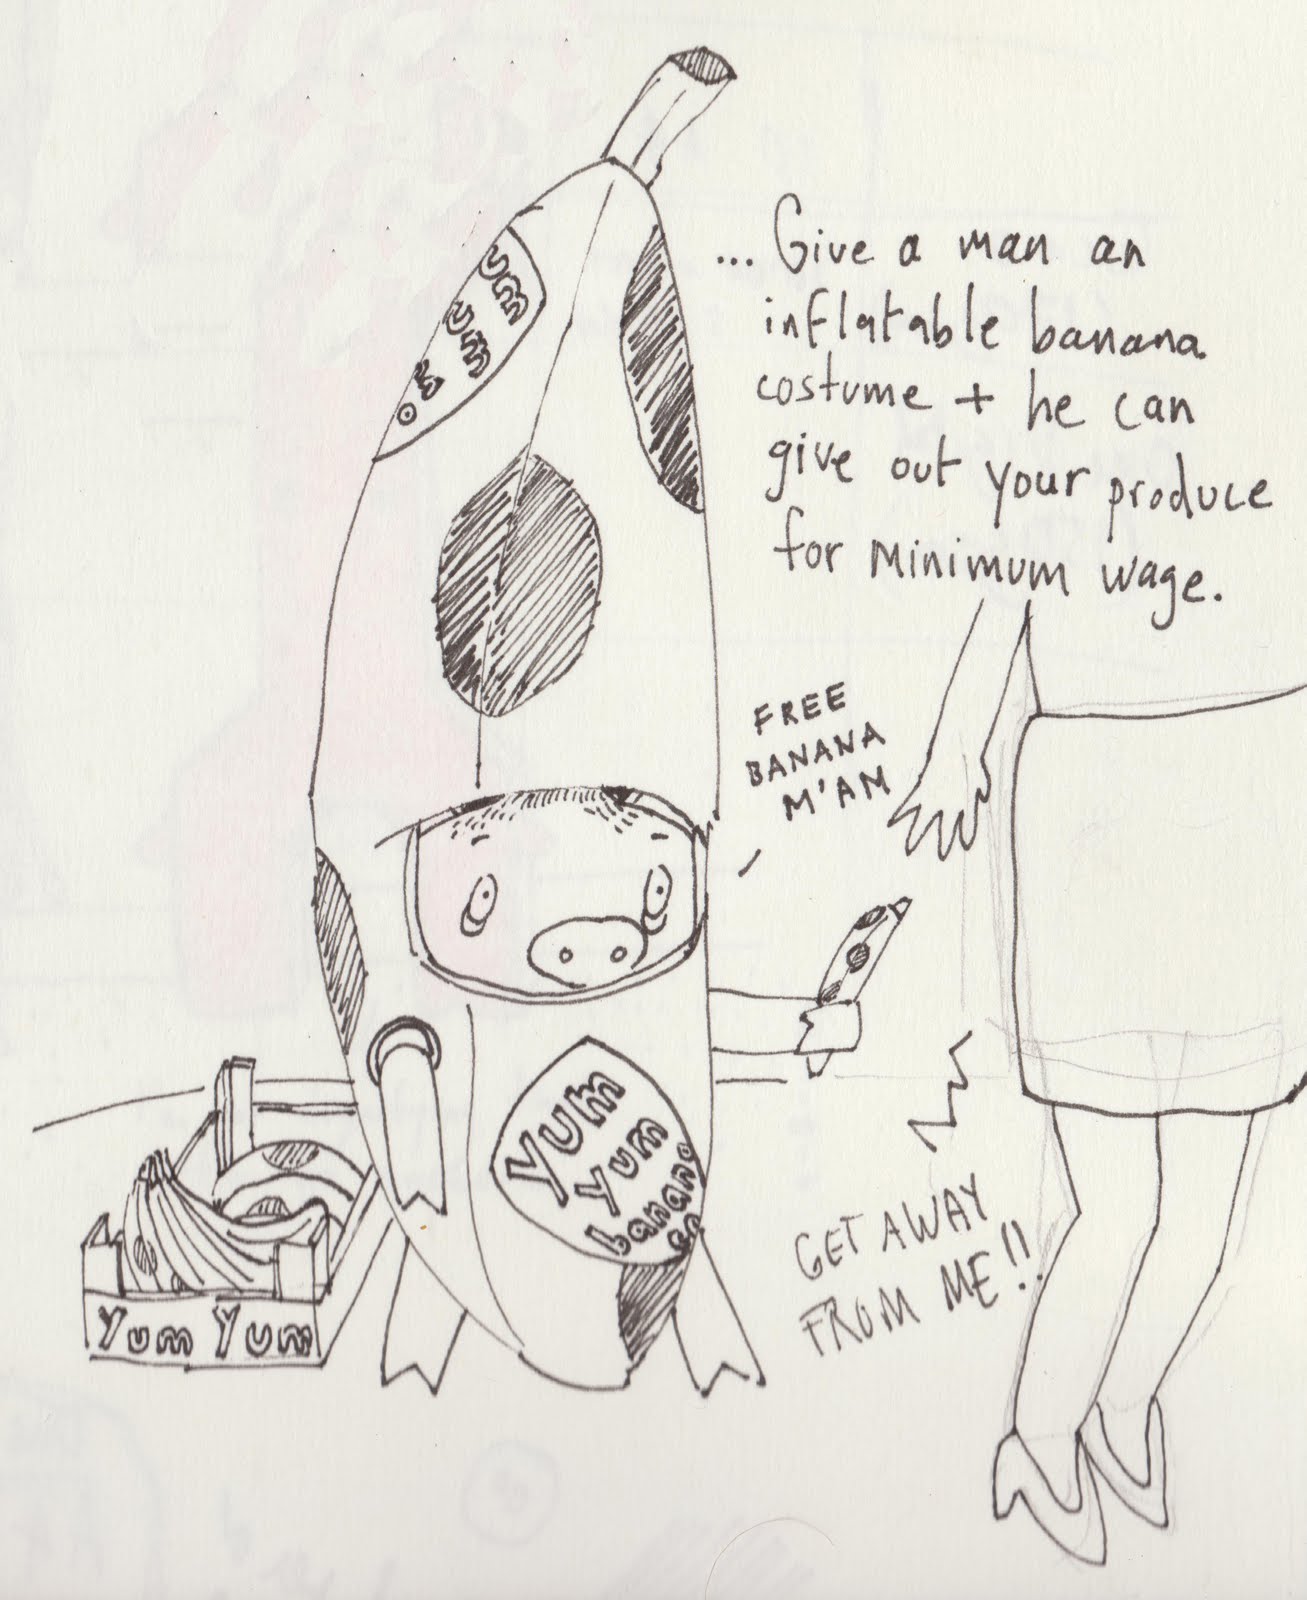 ... Give a man an
inflatable banana
costume + he can
give out your produce
for minimum wage.
um
um
FREE
BANANA
M'AM
Yum
Yum
banana
GET AWAY
FROM ME!!
Yum Yum